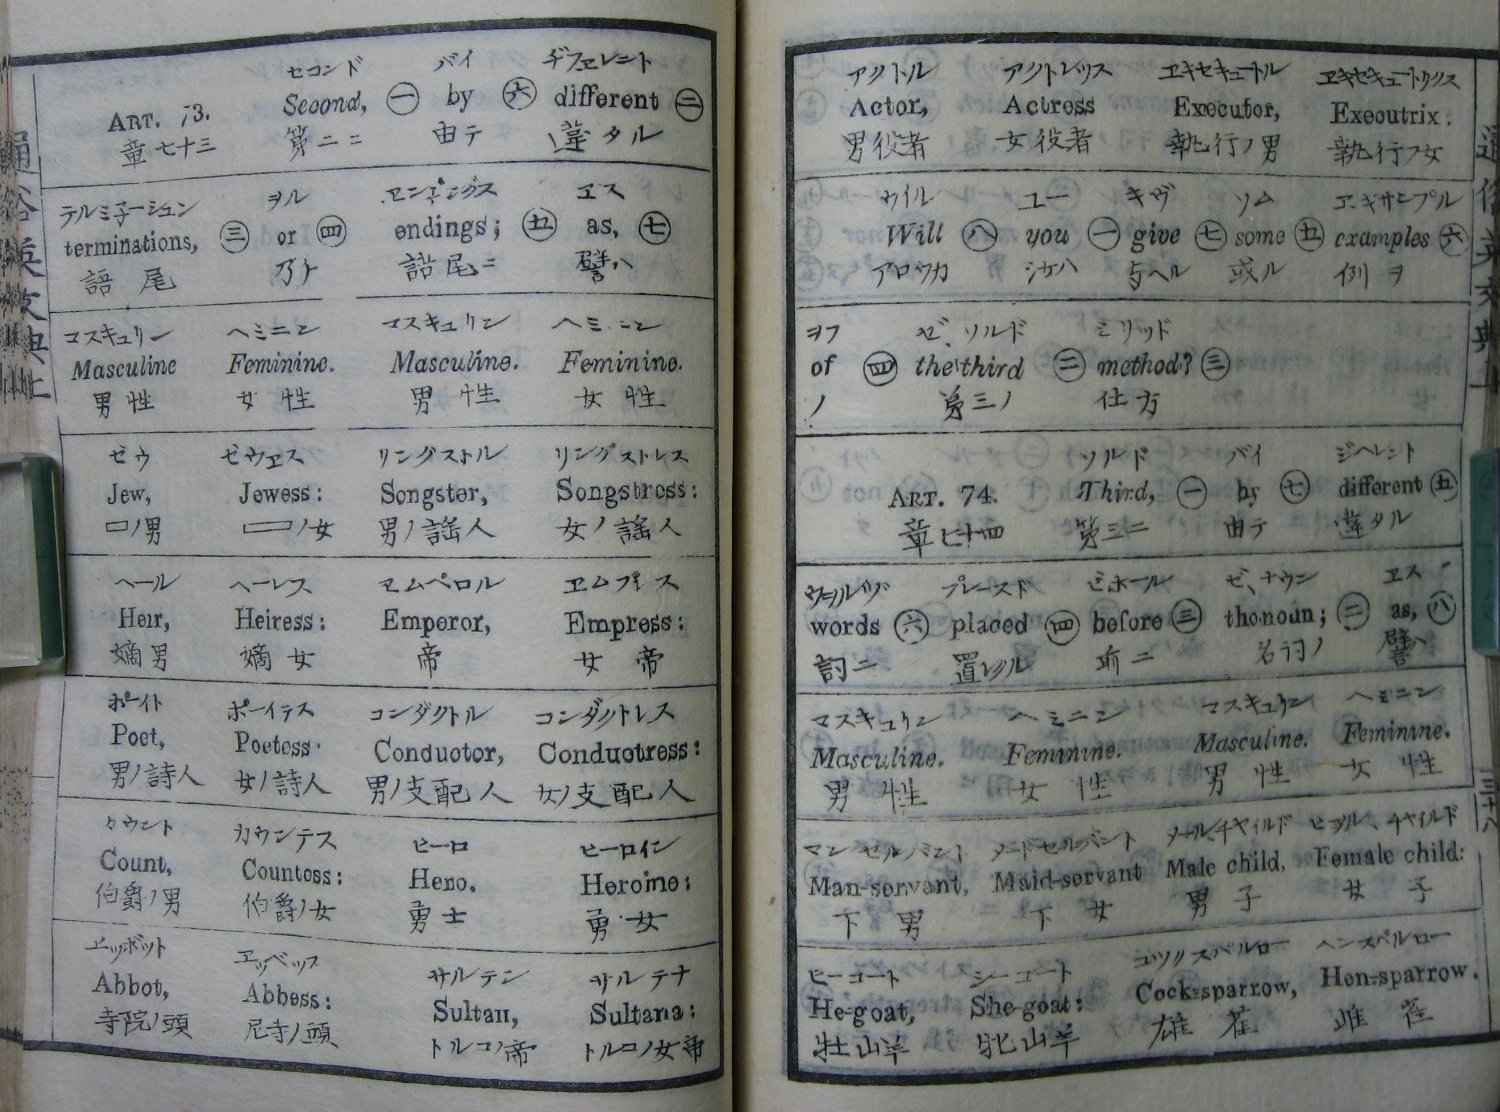 セコンド バイ ヂフェレント
ART. 73. Second, 一 by 六 different 二
章七十三 第二ニ 由テ 違タル
テルミ子ーシュン ヲル ヱンヂングス ヱス
terminations, 三 or 四 endings; 五 as, 七
語尾 乃チ 語尾ニ 譬ハ
マスキュリン ヘミニン マスキュリン ヘミニン
Masculine Feminine. Masculine. Feminine.
男性 女性 男性 女性
ゼウ ゼウヱス リングストル リングストレス
Jew, Jewess: Songster, Songstress:
ノ男 ノ女 男ノ謡人 女ノ謡人
ヘール ヘーレス ヱムペロル ヱムプレス
Heir, Heiress: Emperor, Empress:
嫡男 嫡女 帝 女帝
ポーイト ポーイテス コンダクトル コンダクトレス
Poet, Poetess Conductor, Conductress:
男ノ詩人 女ノ詩人 男ノ支配人 女ノ支配人
カウント カウンテス ヒーロ ヒーロイン
Count, Countess: Hero. Heroine:
伯爵ノ男 伯爵ノ女 勇士 勇女
ヱッボット ヱッベッス サルテン サルテナ
Abbot, Abbess: Sultan, Sultana:
寺院ノ頭 尼寺ノ頭 トルコノ帝 トルコノ女帝
アクトル アクトレッス ヱキセキュートル ヱキセキュートリクス
Actor, Actress Executor, Executrix:
男役者 女役者 執行ノ男 執行ノ女
ウイル ユー キヴ ソム ヱキサンプル
Will 八 you 一 give 七 some 五 examples 六
アロウカ 汝ハ 与ヘル 或ル 例ヲ
ヲフ ゼ、ソルド ミリッド
of 四 the third 二 method? 三
ノ 第三ノ 仕方
ソルド バイ ジヘレント
ART. 74. Third, 一 by 七 different 五
章七十四 第三ニ 由テ 違タル
ウヲルヅ プレースド ビホール ゼ、ナウン ヱス
words 六 placed 四 before 三 the noun; 二 as, 八
詞ニ 置レタル 前ニ 名詞ノ 譬ハ
マスキュリン ヘミニン マスキュリン ヘミニン
Masculine. Feminine. Masculine. Feminine.
男性 女性 男性 女性
マンセルバント メードセルバント メールチャイルド ヒメル、チャイルド
Man-servant, Maid-servant Male child, Female child:
下男 下女 男子 女子
ヒーゴート シーゴート コックスパルロー ヘンスパルロー
He-goat, She-goat: Cock-sparrow, Hen-sparrow.
牡山羊 牝山羊 雄雀 雌雀
通俗英文典上
三十八